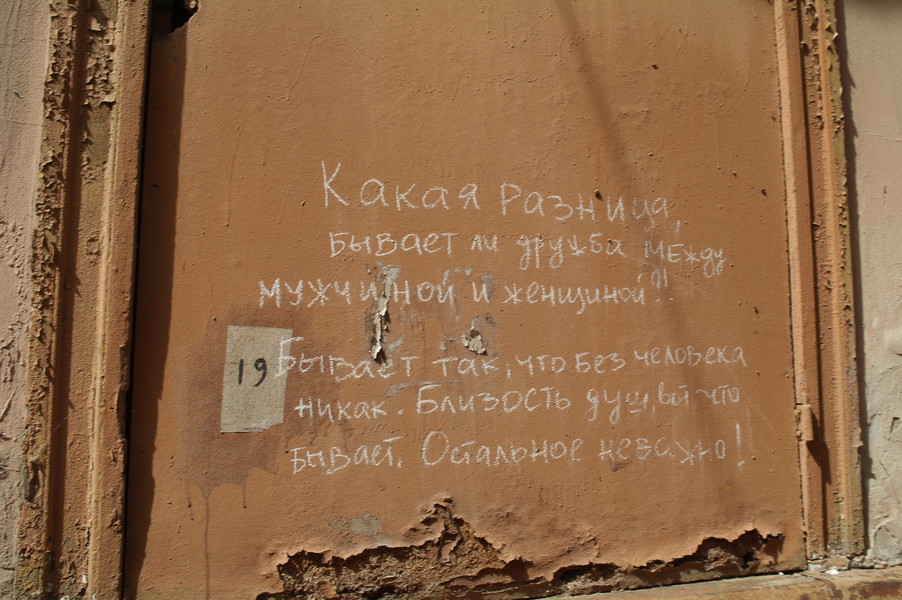 Какая разница,
бывает ли дружба между
мужчиной и женщиной?!
19
Бывает так, что без человека
никак. Близость душ, вот что
бывает. Остальное неважно!